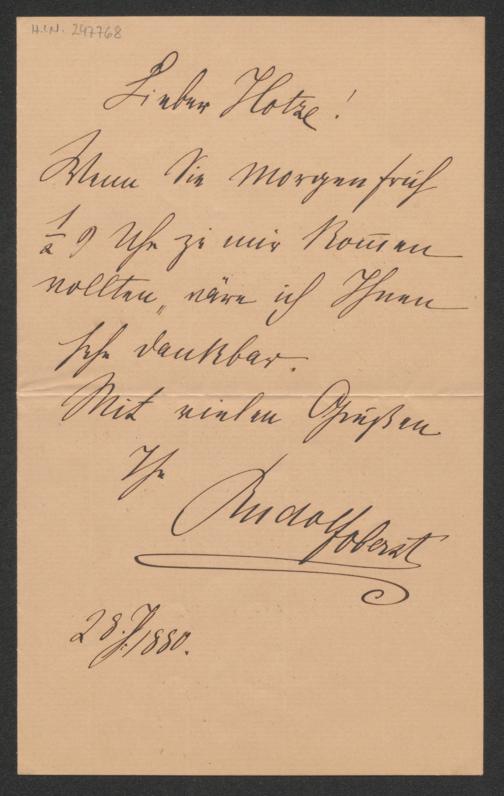 H.I.N. 247768
Lieber Hotze!
Wenn Sie morgen früh
1/2 9 Uhr zu mir kommen
wollten, wäre ich Ihnen
sehr dankbar.
Mit vielen Grüßen
Ihr
Rudolf
28. 1880.